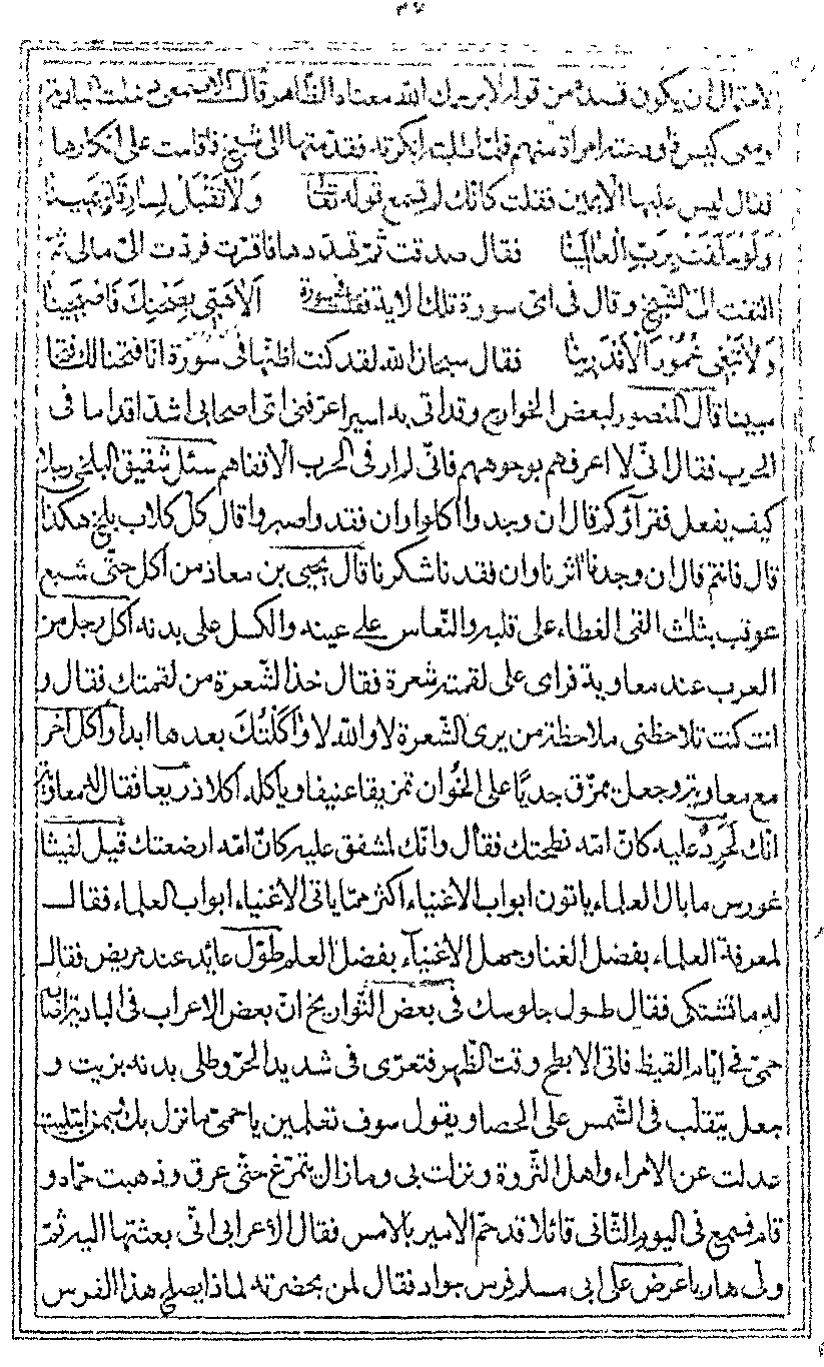 ٣٤
لاحتمال ان يكون قسده من قوله لا يرحمك الله معناه الظاهر قال الاصمعي دخلت البادية
ومعي كيس فاودعته امراة منهم فلما طلبته انكرته فقدمتها الى شيخ فاقامت على انكارها
فقال ليس عليها الا يمين فقلت كانك لم تسمع قوله تعالى وَلَا تَقْبَلْ لِسَارِقَةٍ يَمِينًا
وَلَوْ حَلَفَتْ بِرَبِّ الْعَالَمِينَا فقال صدقت ثمّ تهدّدها فاقرّت فردّت الىّ مالى ثمّ
التفت الىّ الشيخ وقال فى اىّ سورة تلك الاية فقلت فى سورة اَلَا هُبّى بِصَحْنِكَ فَاصْبَحِينَا
وَلَا تُبْقِى خُمُورَ الْاَنْدَرِينَا فقال سبحان الله لقد كنت اظنّها فى سورة انّا فتحنا لك فتحا
مبينا قال المنصور لبعض الخوارج وقد اتى به اسيرا عرّفنى اىّ اصحابى اشدّ اقداما فى
الحرب فقال انّى لا اعرفهم بوجوههم فانّى لم ار فى الحرب الا قفاهم سئل شقيق البلخى رجلا
كيف يفعل فقرآؤكم قال ان وجدوا اكلوا وان فقدوا صبروا قال كلّ كلاب بلخ هكذا
قال فانتم قال ان وجدنا اثرنا وان فقدنا شكرنا قال يحيى بن معاذ من اكل حتّى شبع
عوقب بثلث القى الغطاء على قلبه والنّعاس على عينه والكسل على بدنه اكل رجل من
العرب عند معاوية فراى على لقمته شعرة فقال خذ الشّعرة من لقمتك فقال و
انت كنت تلاحظنى ملاحظة من يرى الشّعرة لا والله لا وَاكَلْتُكَ بعدها ابدا واكل آخر
مع معاوية وجعل يمزّق جديًا على الخُوان تمزيقا عنيفا وياكله اكلا ذريعا فقال له معاوية
انك لَحَرِدٌ عليه كانّ امّه نطحتك فقال وانّك لمشفق عليه كانّ امّه ارضعتك قيل لفيثا
غورس ما بال العلماء ياتون ابواب الاغنياء اكثر ممّا ياتى الاغنياء ابواب العلماء فقال
لمعرفة العلماء بفضل الغنا وجهل الاغنياء بفضل العلم طوّل عائد عند مريض فقال
له ما تشتكى فقال طول جلوسك فى بعض التّواريخ انّ بعض الاعراب فى البادية اصابه
حمىّ فى ايّام القيظ فاتى الابطح وقت الظّهر فتعرّى فى شديد الحرّ وطلى بدنه بزيت و
جعل يتقلّب فى الشّمس على الحصا ويقول سوف تعلمين يا حمىّ ما نزل بك وبمن ابتليت
عدلت عن الامراء واهل الثّروة ونزلت بى وما زال يتمرّغ حتّى عرق وذهبت حمّاه و
قام فسمع فى اليوم الثّانى قائلا قد حمّ الامير بالامس فقال الاعرابى انّى بعثتها اليه ثمّ
ولّى هاربا عرض على ابى مسلم فرس جواد فقال لمن بحضرته لماذا يصلح هذا الفرس